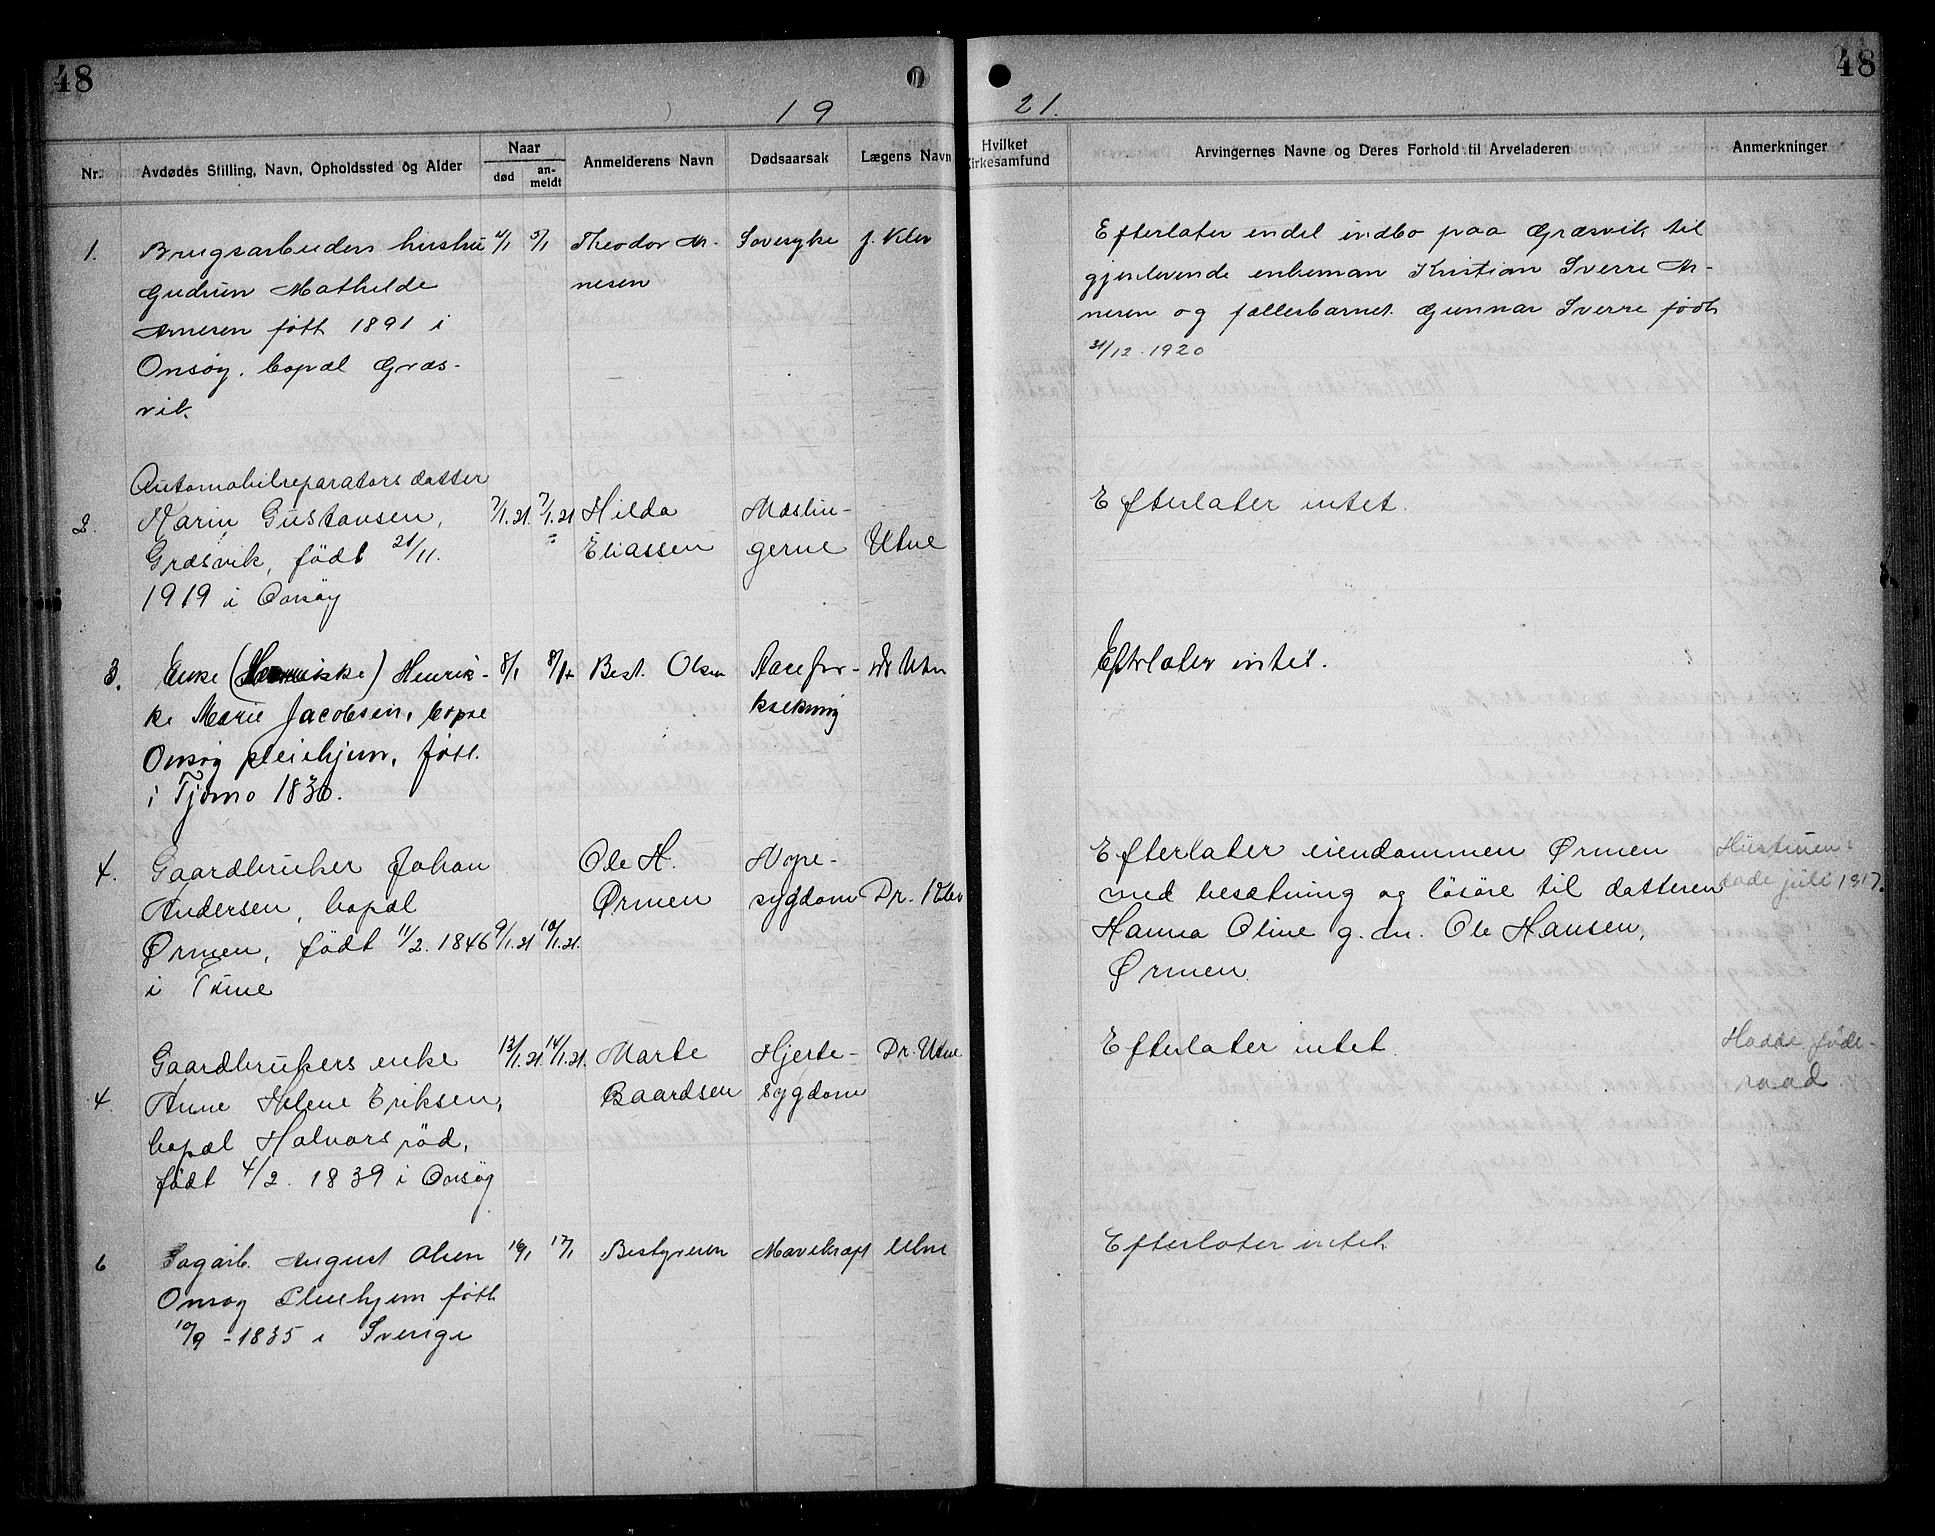 48
48
19
21.
Nr.
Avdødes Stilling, Navn, Opholdssted og Alder
Naar
død
an-
meldt
Anmelderens Navn
Dødsaarsak
Lægens Navn
Hvilket
Kirkesamfund
Arvingernes Navne og Deres Forhold til Arveladeren
Anmerkninger
1.
Brugsarbeiders hustru
Gudrun Mathilde
Arnesen født 1891 i
Onsøy. bopæl Græs-
vik.
4/1
5/1
Theodor Ar-
nesen
Sovesyke
J. Klev
Efterlater endel indbo paa Græsvik til
gjenlevende enkeman Kristian Sverre Ar-
nesen og fællesbarnet Gunnar Sverre født
31/12. 1920
2.
Automobilreparatørs datter
Karin Gustavsen,
Græsvik, født 21/11.
1919 i Onsøy
7/1.21.
7/1.21
Hilda
Eliassen
Mæslin-
gerne
Utne
Efterlater intet.
3.
Enke Henrik-
ke Marie Jacobsen, bopæl
Onsøy pleiehjem, født
i Tjømø 1830.
8/1
8/1
Best. Olsen
Aarefor-
kalkning
dr Utne
Efterlater intet.
4.
Gaardbruker Johan
Andersen, bopæl
Ørmen, født 11/2. 1846
i Tune
9/1.21
10/1.21.
Ole H.
Ørmen
Nyre-
sygdom
Dr. Klev
Efterlater eiendommen Ørmen
med besætning og løsøre til datteren
Hanna Oline g. m. Ole Hansen,
Ørmen.
Hustruen
døde juli 1917.
4.
Gaardbrukers enke
Anne Helene Eriksen,
bopæl Halvorsrød,
født 4/2. 1839 i Onsøy
13/1.21
14/1.21.
Marte
Baardsen
Hjerte-
sygdom
Dr. Utne
Efterlater intet.
Hadde føde-
raad
6
Sagarb. August Olsen
Onsøy Pleiehjem født
10/9 - 1835 i Sverige
16/1
17/1
Bestyreren
Mavekræft
Utne
Efterlater intet